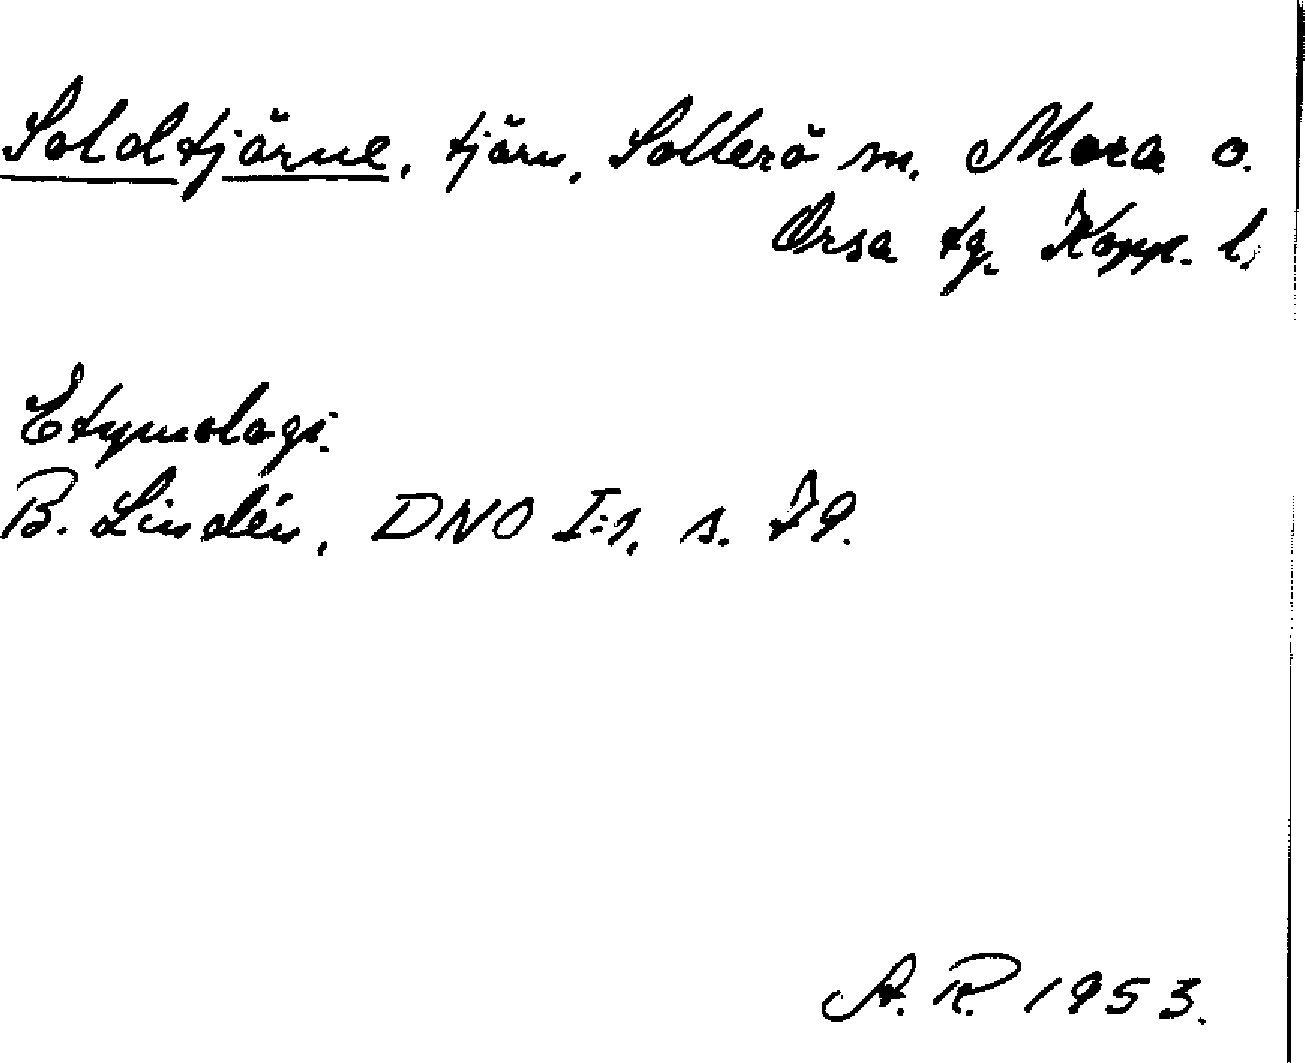 Soldtjärne, tjärn, Sollerö sn. Mora o.
Orsa tg. Kopp. l.
Etymologi.
B. Lindén, DNO I:1, s. 79.
A. R. 1953.